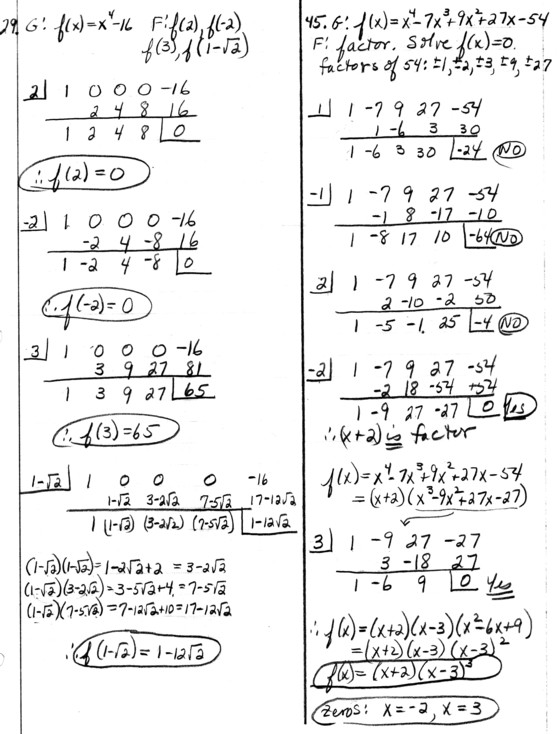 29. G: f(x)=x⁴-16 F: f(2), f(-2)
f(3), f(1-√2)
2| 1 0 0 0 -16
2 4 8 16
1 2 4 8 |0
∴ f(2)=0
-2| 1 0 0 0 -16
-2 4 -8 16
1 -2 4 -8 |0
∴ f(-2)=0
3| 1 0 0 0 -16
3 9 27 81
1 3 9 27 |65
∴ f(3)=65
1-√2| 1 0 0 0 -16
1-√2 3-2√2 7-5√2 17-12√2
1 (1-√2) (3-2√2) (7-5√2) |1-12√2
(1-√2)(1-√2)=1-2√2+2 =3-2√2
(1-√2)(3-2√2)=3-5√2+4 =7-5√2
(1-√2)(7-5√2)=7-12√2+10=17-12√2
∴ f(1-√2)=1-12√2
45. G: f(x)=x⁴-7x³+9x²+27x-54
F: factor. Solve f(x)=0.
factors of 54: ±1, ±2, ±3, ±9, ±27
1| 1 -7 9 27 -54
1 -6 3 30
1 -6 3 30 |-24 NO
-1| 1 -7 9 27 -54
-1 8 -17 -10
1 -8 17 10 |-64 NO
2| 1 -7 9 27 -54
2 -10 -2 50
1 -5 -1 25 |-4 NO
-2| 1 -7 9 27 -54
-2 18 -54 +54
1 -9 27 -27 |0 Yes
∴ (x+2) is factor
f(x)=x⁴-7x³+9x²+27x-54
=(x+2)(x³-9x²+27x-27)
3| 1 -9 27 -27
3 -18 27
1 -6 9 |0 Yes
∴ f(x)=(x+2)(x-3)(x²-6x+9)
=(x+2)(x-3)(x-3)²
f(x)=(x+2)(x-3)³
zeros: x=-2, x=3